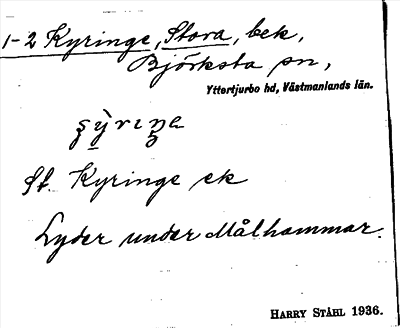 1-2 Kyringe, Stora, bek,
Björksta sn,
Yttertjurbo hd, Västmanlands län.
St. Kyringe ek
Lyder under Målhammar.
HARRY STÅHL 1936.